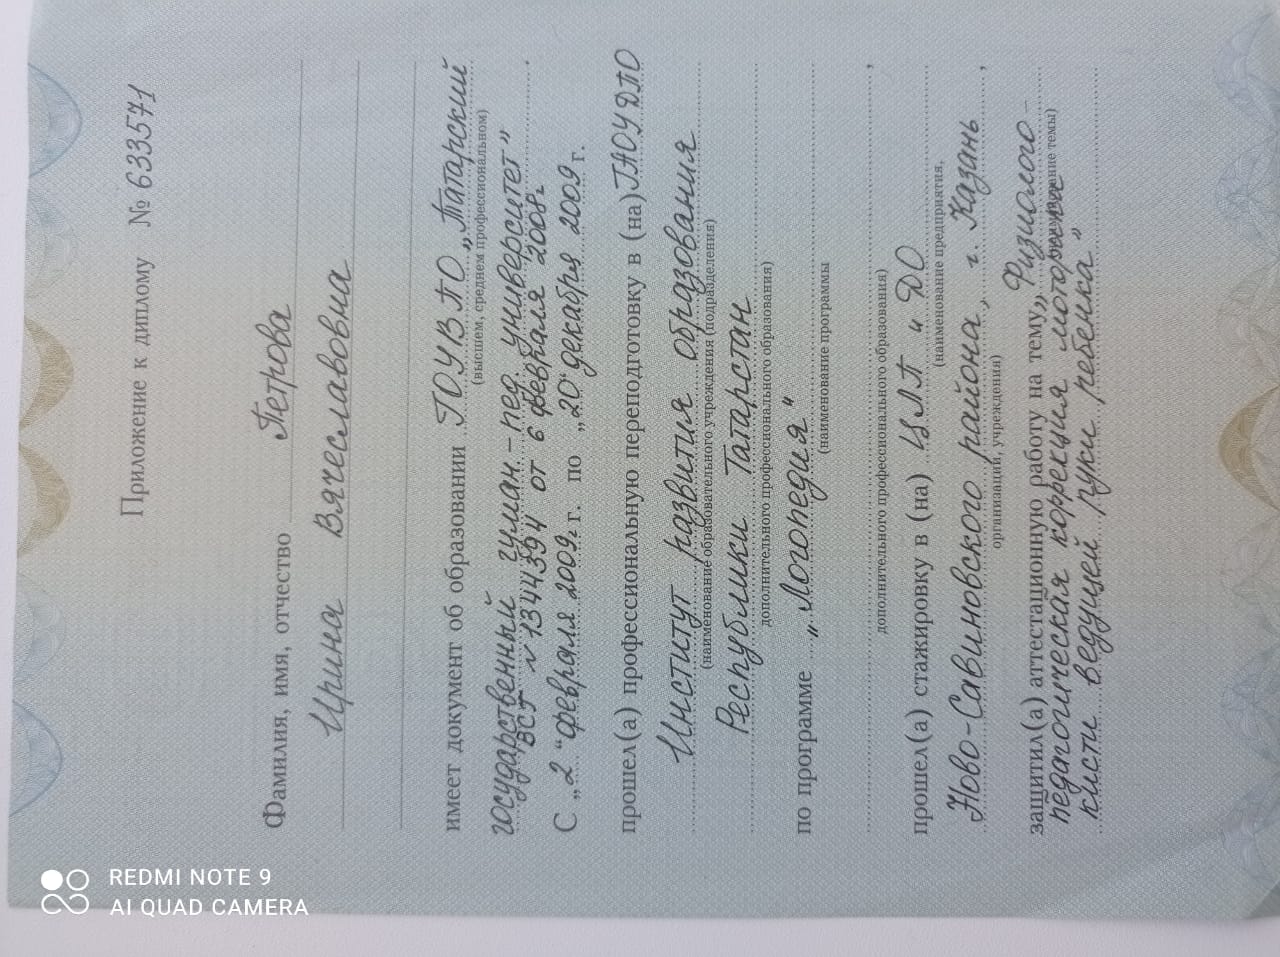 Приложение к диплому № 633571
Фамилия, имя, отчество Петрова
Ирина Вячеславовна
имеет документ об образовании ГОУВПО „Татарский
(высшем, среднем профессиональном)
государственный гуман.-пед. университет”
ВСГ № 1344394 от 6 февраля 2008г.
С „2“ февраля 2009 г. по „20“ декабря 2009 г.
прошел(а) профессиональную переподготовку в (на) ГАОУ ДПО
Институт развития образования
(наименование образовательного учреждения (подразделения)
Республики Татарстан
дополнительного профессионального образования)
по программе „Логопедия“
(наименование программы
,
дополнительного профессионального образования)
прошел(а) стажировку в (на) ЦЛП и ДО
(наименование предприятия,
Ново-Савиновского района, г. Казань ,
организации, учреждения)
защитил(а) аттестационную работу на тему „Физиолого-
(наименование темы)
педагогическая коррекция моторики
кисти ведущей руки ребенка”
REDMI NOTE 9
AI QUAD CAMERA